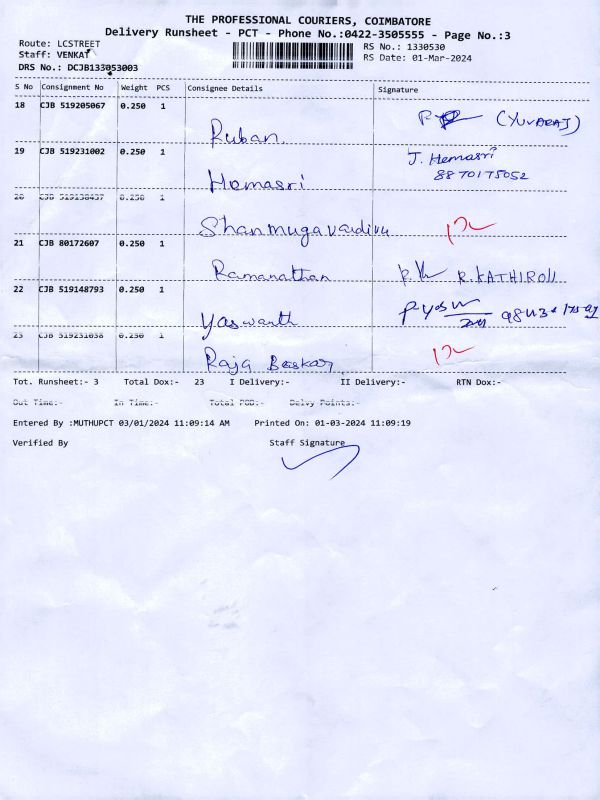 THE PROFESSIONAL COURIERS, COIMBATORE
Delivery Runsheet - PCT - Phone No.:0422-3505555 - Page No.:3
Route: LCSTREET
RS No.: 1330530
Staff: VENKAT
RS Date: 01-Mar-2024
DRS No.: DCJB133053003
S No Consignment No Weight PCS Consignee Details Signature
18 CJB 519205067 0.250 1
Ruban. (YUVARAJ)
19 CJB 519231002 0.250 1
J. Hemasri
8870175052
Hemasri
20 CJB 519238457 0.250 1
Shanmugavadivu
21 CJB 80172607 0.250 1
Ramanathan R. KATHIROLI
22 CJB 519148793 0.250 1
Yaswanth
23 CJB 519231038 0.250 1
Raja Baskar
Tot. Runsheet:- 3 Total Dox:- 23 I Delivery:- II Delivery:- RTN Dox:-
Out Time:- In Time:- Total POD:- Delvy Points:-
Entered By :MUTHUPCT 03/01/2024 11:09:14 AM Printed On: 01-03-2024 11:09:19
Verified By Staff Signature